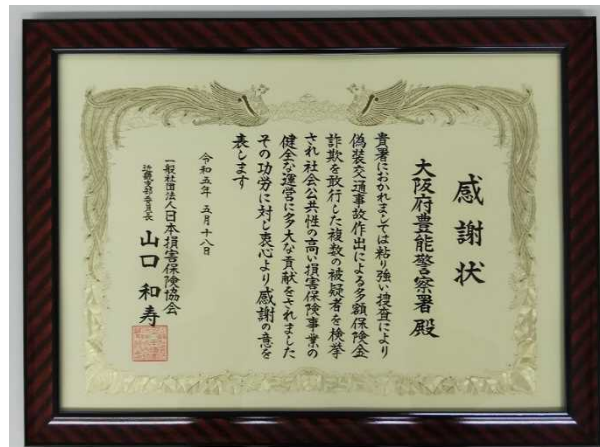 感謝状
大阪府豊能警察署殿
貴署におかれましては粘り強い捜査により
偽装交通事故作出による多額保険金
詐欺を敢行した複数の被疑者を検挙
され社会公共性の高い損害保険事業の
健全な運営に多大な貢献をされました
その功労に対し衷心より感謝の意を
表します
令和五年 五月十八日
一般社団法人日本損害保険協会
近畿支部委員長 山口和寿